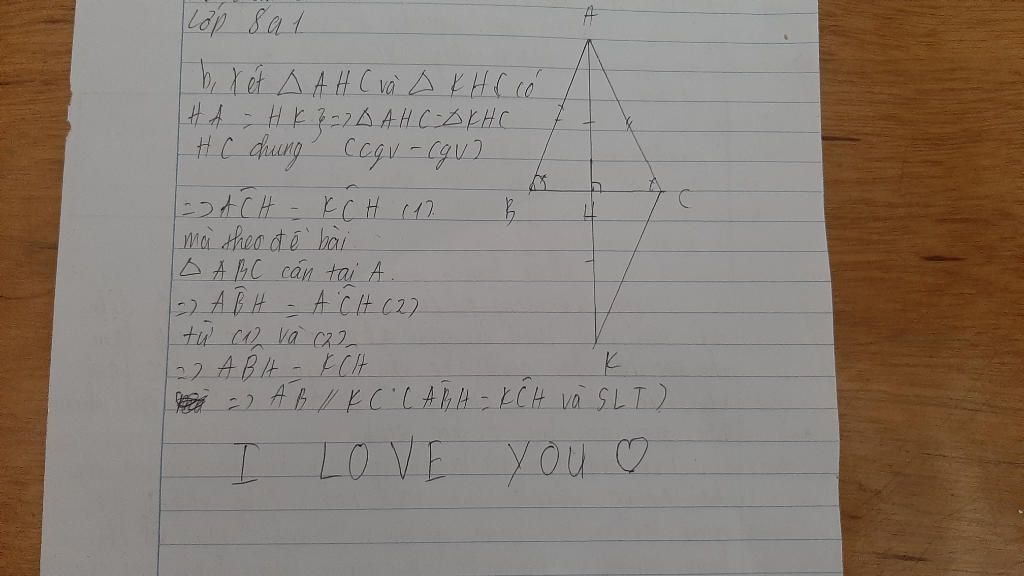 Lớp 8a1
A
b, Xét △ AHC và △ KHC có
HA = HK } => △ AHC = △ KHC
HC chung (cgv - cgv)
B
H
C
=> AĈH = KĈH (1)
mà theo đề bài
△ ABC cân tại A.
=> AB̂H = AĈH (2)
từ (1) và (2)
=> AB̂H = KĈH
K
=> AB // KC (AB̂H = KĈH và SLT)
I LOVE YOU ♡